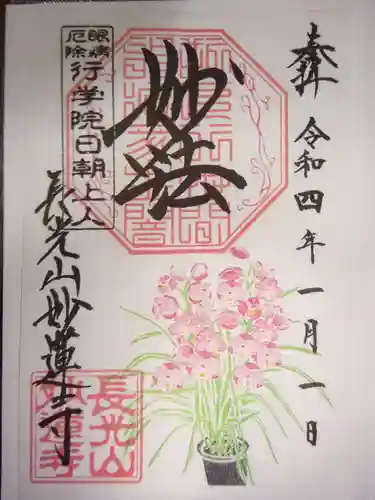 奉拝
令和四年一月一日
妙法
眼病
厄除
行学院日朝上人
長光山妙蓮寺
長光山
妙蓮寺